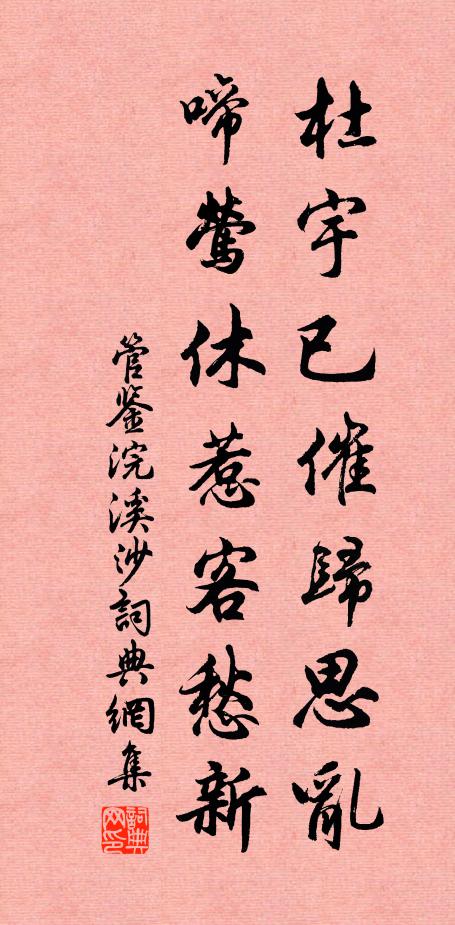 杜宇已催歸思亂
啼鶯休惹客愁新
管鉴浣溪沙詞典網集
詞典网印